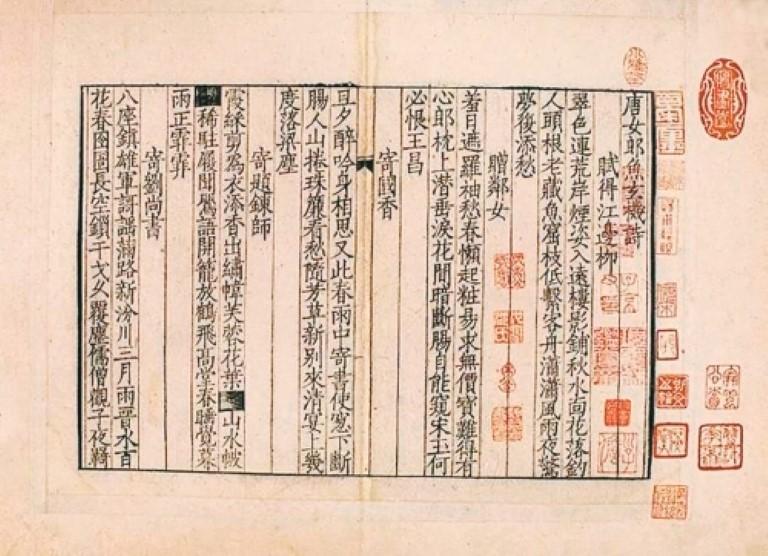 唐女郎魚玄機詩
賦得江邊柳
翠色連荒岸煙姿入遠樓影鋪秋水面花落釣
人頭根老藏魚窟枝低繫客舟瀟瀟風雨夜驚
夢復添愁
贈鄰女
羞日遮羅袖愁春懶起粧易求無價寶難得有
心郎枕上潛垂淚花間暗斷腸自能窺宋玉何
必恨王昌
寄國香
旦夕醉吟身相思又此春雨中寄書使窓下斷
腸人山捲珠簾看愁隨芳草新別來清宴上幾
度落梁塵
寄題鍊師
霞綵剪為衣添香出繡幃芙蓉花葉山水帔
稀駐履聞鶯語開籠放鶴飛高堂春睡覺暮
雨正霏霏
寄劉尚書
八座鎮雄軍謌謠滿路新汾川三月雨晉水百
花春囹圄長空鎖干戈久覆塵儒僧觀子夜羇